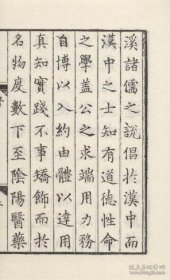 溪諸儒之說倡於漢中而
漢中之士知有道德性命
之學蓋公之求端用力務
自博以入約由體以達用
真知實踐不事矯飾而於
名物度數下至陰陽醫藥